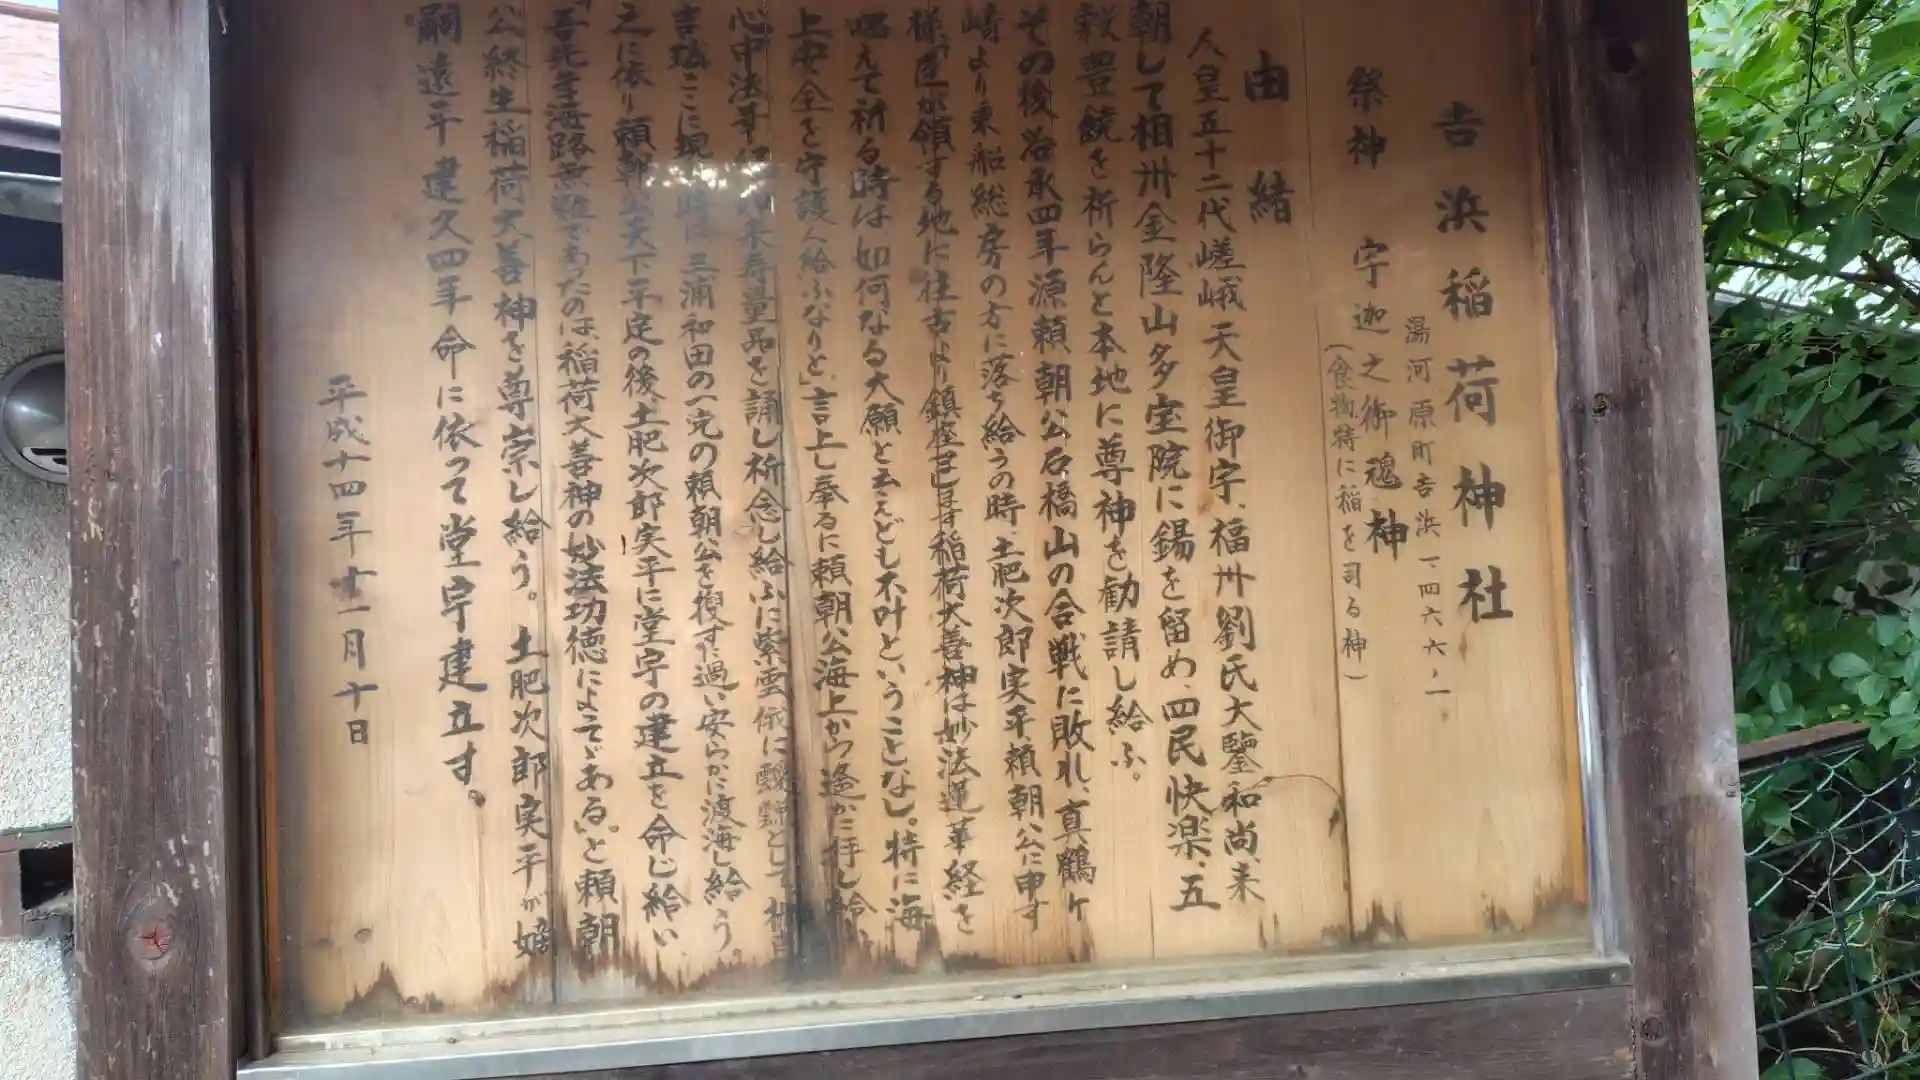 吉浜稲荷神社
湯河原町吉浜一、四六六ノ一
祭神 宇迦之御魂神
(食物特に稲を司る神)
由緒
人皇五十二代嵯峨天皇御宇、福州劉氏大鑒和尚、来
朝して相州金隆山多宝院に錫を留め、四民快楽、五
穀豊饒を祈らんと本地に尊神を勧請し給ふ。
その後治承四年源頼朝公石橋山の合戦に敗れ、真鶴ヶ
崎より乗船総房の方に落ち給うの時、土肥次郎実平頼朝公に申す
様「臣が領する地に往古より鎮座まします稲荷大善神は妙法蓮華経を
唱えて祈る時は如何なる大願と云えども不叶ということなし。特に海
上安全を守護し給ふなりと」言上し奉るに頼朝公海上から遙かに拝し給
心中法華経 来寿量品を誦し祈念し給ふに紫雲俄に靉靆として
吉瑞ここに現 時に三浦和田の一党の頼朝公を捜すに遇い安らかに渡海し給う。
之に依り頼朝公天下平定の後、土肥次郎実平に堂宇の建立を命じ給い
「吾先年海路無難であったのは稲荷大善神の妙法功徳によってである」と頼朝
公終生稲荷大善神を尊崇し給う。土肥次郎実平が嫡
嗣遠平建久四年命に依って堂宇建立す。
平成十四年十一月十日